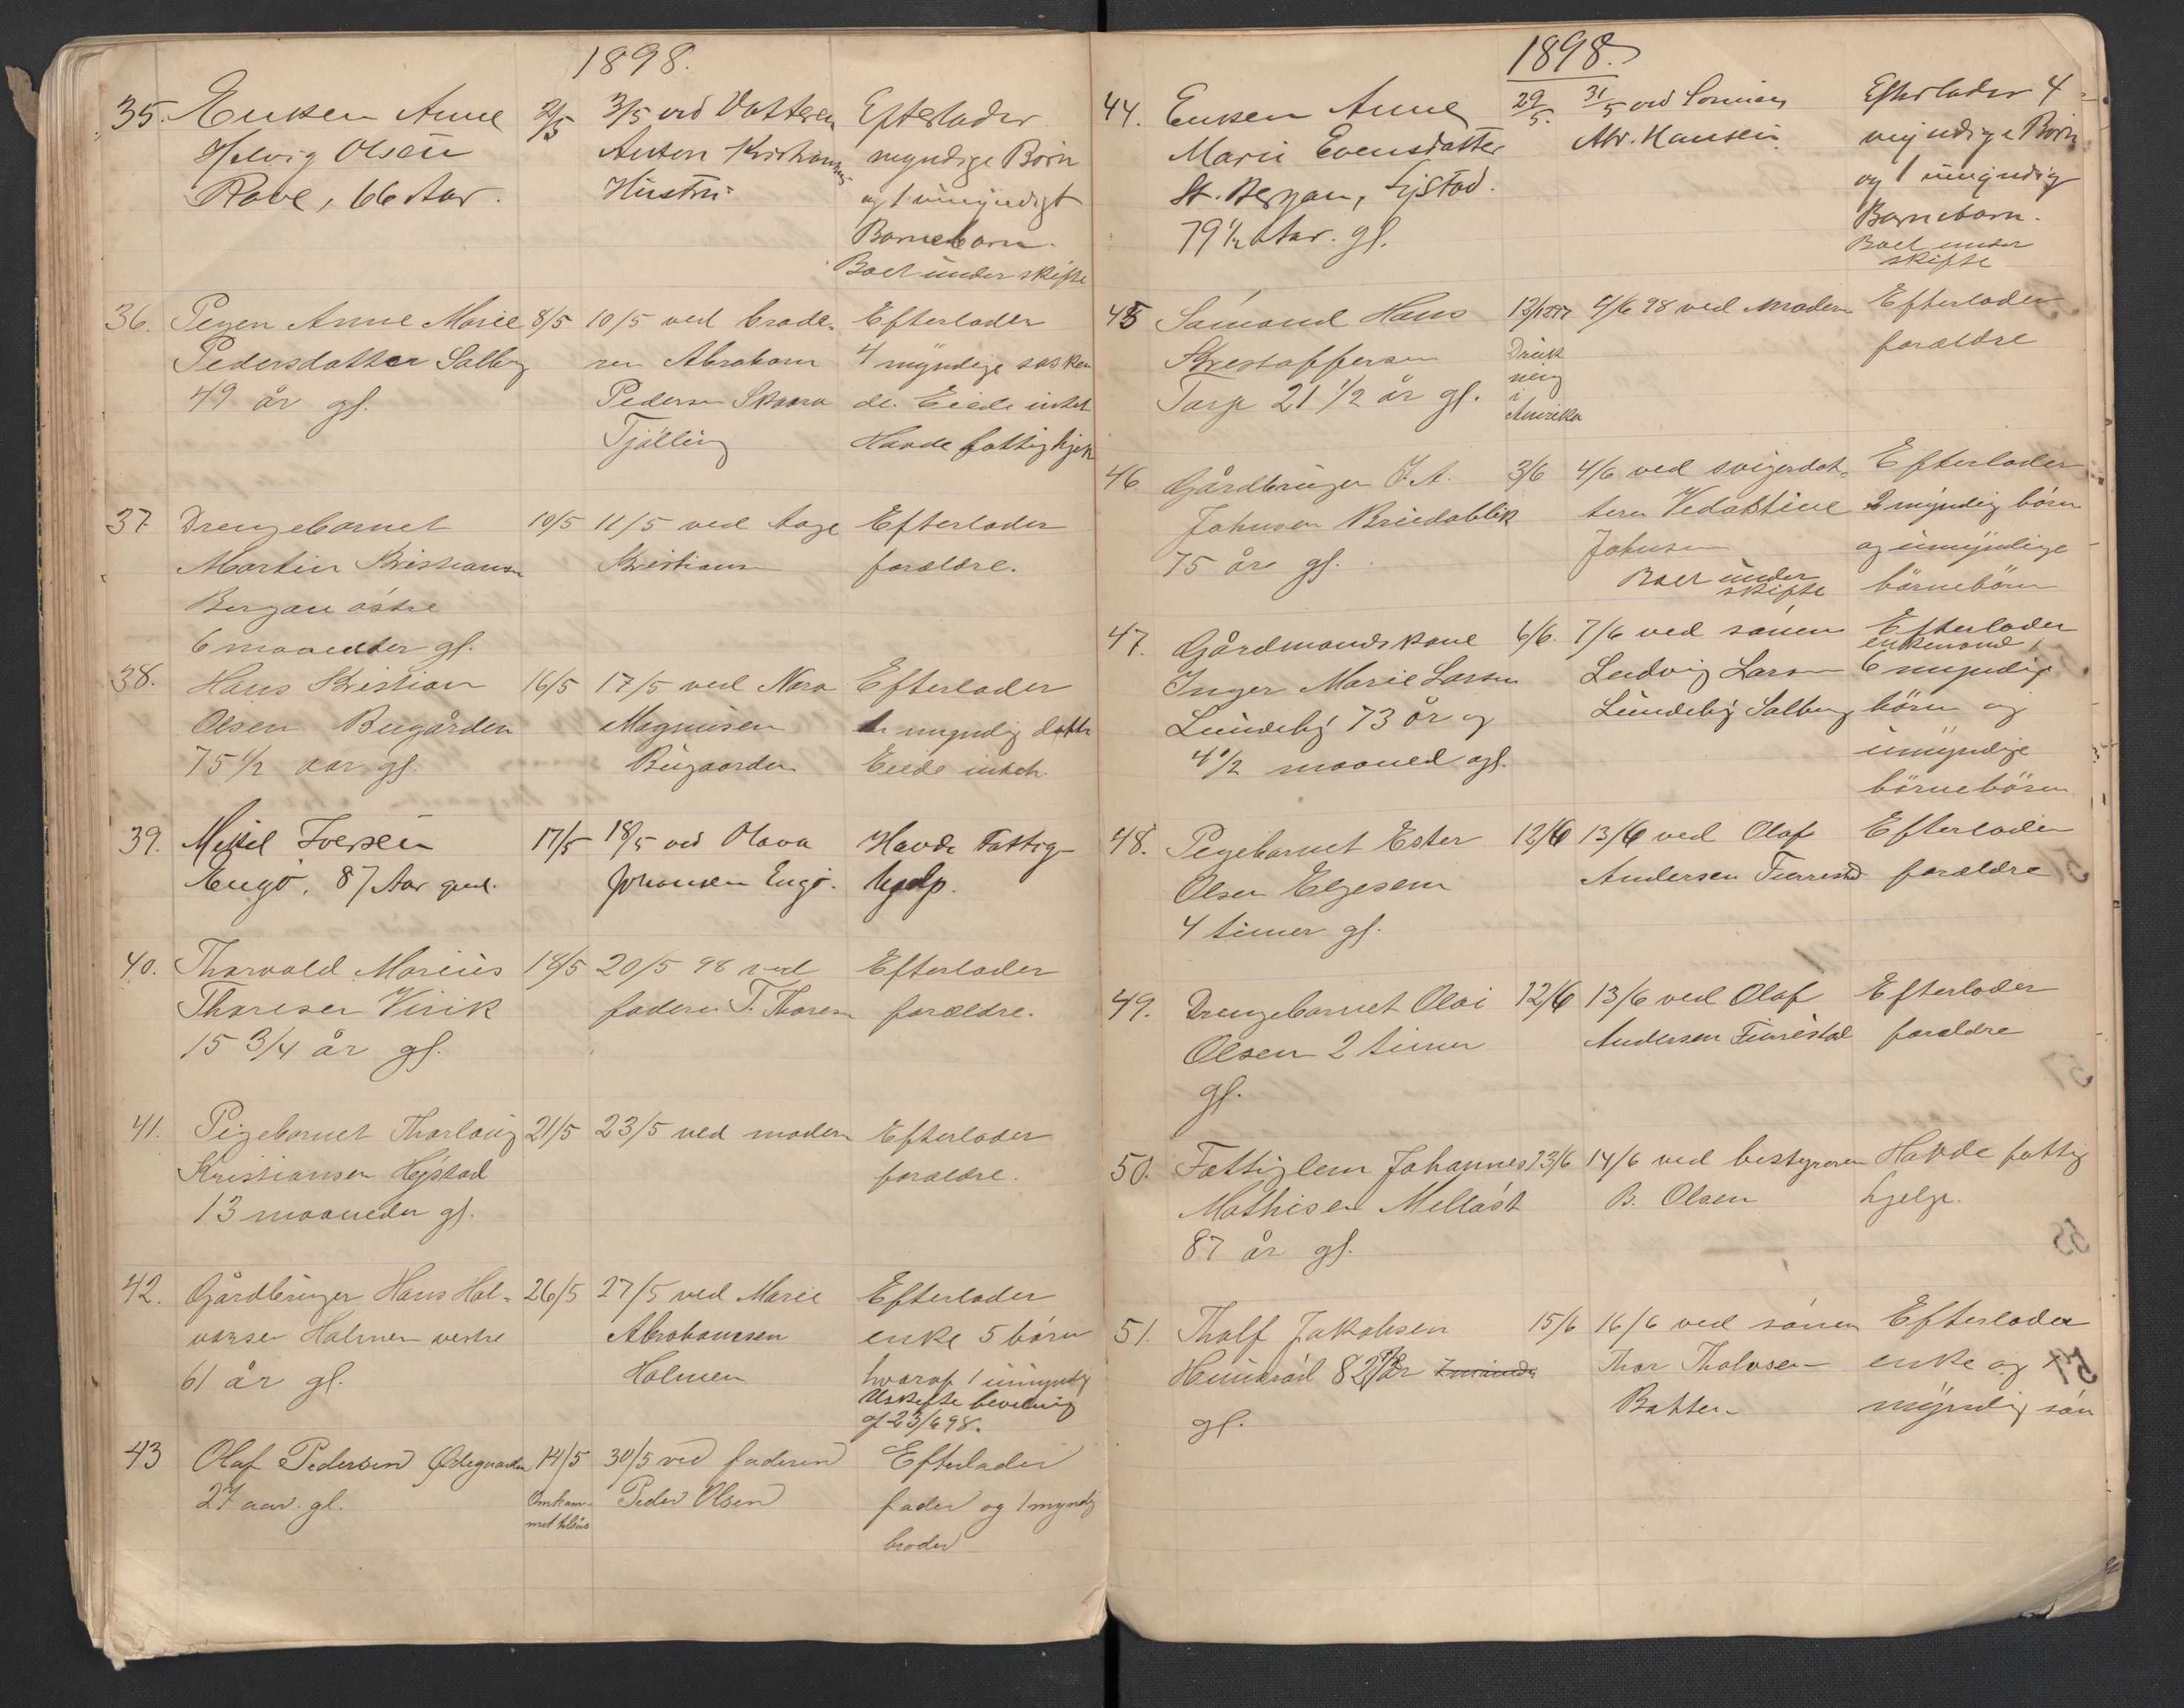 1898.
35. Enken Anne 2/5 3/5 ved Datteren Efterlader
Helvig Olsen Anton Kristiansens myndige Børn
Rove, 66 Aar. Hustru og 1 umyndigt
Barnebarn.
Boet under skifte
36. Pigen Anne Marie 8/5 10/5 ved brode- Efterlader
Pedersdatter Solberg ren Abraham 4 myndige sösken
49 år gl. Pedersen Skaara de. Eiede intet
Tjölling Havde fattighjelp
37. Drengebarnet 10/5 11/5 ved Aage Efterlader
Martin Kristiansen Kristiansen forældre.
Bergan östre
6 maaneder gl.
38. Hans Kristian 16/5 17/5 ved Nora Efterlader
Olsen Bugården Magnusen 1 myndig datter
75 1/2 aar gl. Bugaarden Eiede intet.
39. Mikkel Iversen 17/5 18/5 ved Olava Havde Fattig-
Engö, 87 Aar gml. Johansen Engö. hjelp.
40. Thorvald Marius 18/5 20/5 98 ved Efterlader
Thoresen Virik faderen T. Thoresen forældre.
15 3/4 år gl.
41. Pigebarnet Thorlaug 21/5 23/5 ved modern Efterlader
Kristiansen Hystad forældre.
13 maaneder gl.
42. Gårdbruger Hans Hal- 26/5 27/5 ved Marie Efterlader
vorsen Holmen vestre Abrahamsen enke 5 börn
61 år gl. Holmen hvoraf 1 umyndig
Uskifte bevilling
af 23/6 98.
43 Olaf Pedersen Ødegaarden 14/5 30/5 ved faderen Efterlader
27 aar. gl. Omkom- Peder Olsen fader og 1 myndig
met tilsös broder
1898.
44. Enken Anne 29/5. 31/5 ved Sönnen Efterlader 4
Marie Evensdatter Mr. Hansen. myndige Børn
St. Bergan, Hystad. og 1 umyndig
79 1/2 Aar. gl. Barnebarn.
Boet under
skifte
45 Sömand Hans 4/6 98 ved modern Efterlader
Kristoffersen Druk forældre
Torp 21 1/2 år gl. ning
i
Amerika
46. Gårdbruger J. A. 3/6 4/6 ved svigerdat- Efterlader
Johnsen Breidablik teren Vedastine 2 myndig börn
75 år gl. Johnsen og umyndige
Boet under börnebörn
skifte
47. Gårdmandskone 6/6. 7/6 ved sönen Efterlader
enkemand,
Inger Marie Larsen Ludvig Larsen 6 myndig
Lundeby 73 år og Lundeby Solberg börn og
4 1/2 maaned gl. umyndige
börnebörn
48. Pigebarnet Ester 12/6 13/6 ved Olaf Efterlader
Olsen Elgesem Andersen Furrestad forældre
4 timer gl.
49. Drengebarnet Olai 12/6 13/6 ved Olaf Efterlader
Olsen 2 timer Andersen Furrestad forældre
gl.
50. Fattiglem Johannes 13/6 14/6 ved bestyreren Havde fattig
Mathisen Melläst B. Olsen hjelp.
87 år gl.
51. Tholf Jakobsen 15/6 16/6 ved sönen Efterlader
Hunsröd 82 1/2 år Thor Tholvsen enke og 1
gl. Bakken myndig sön